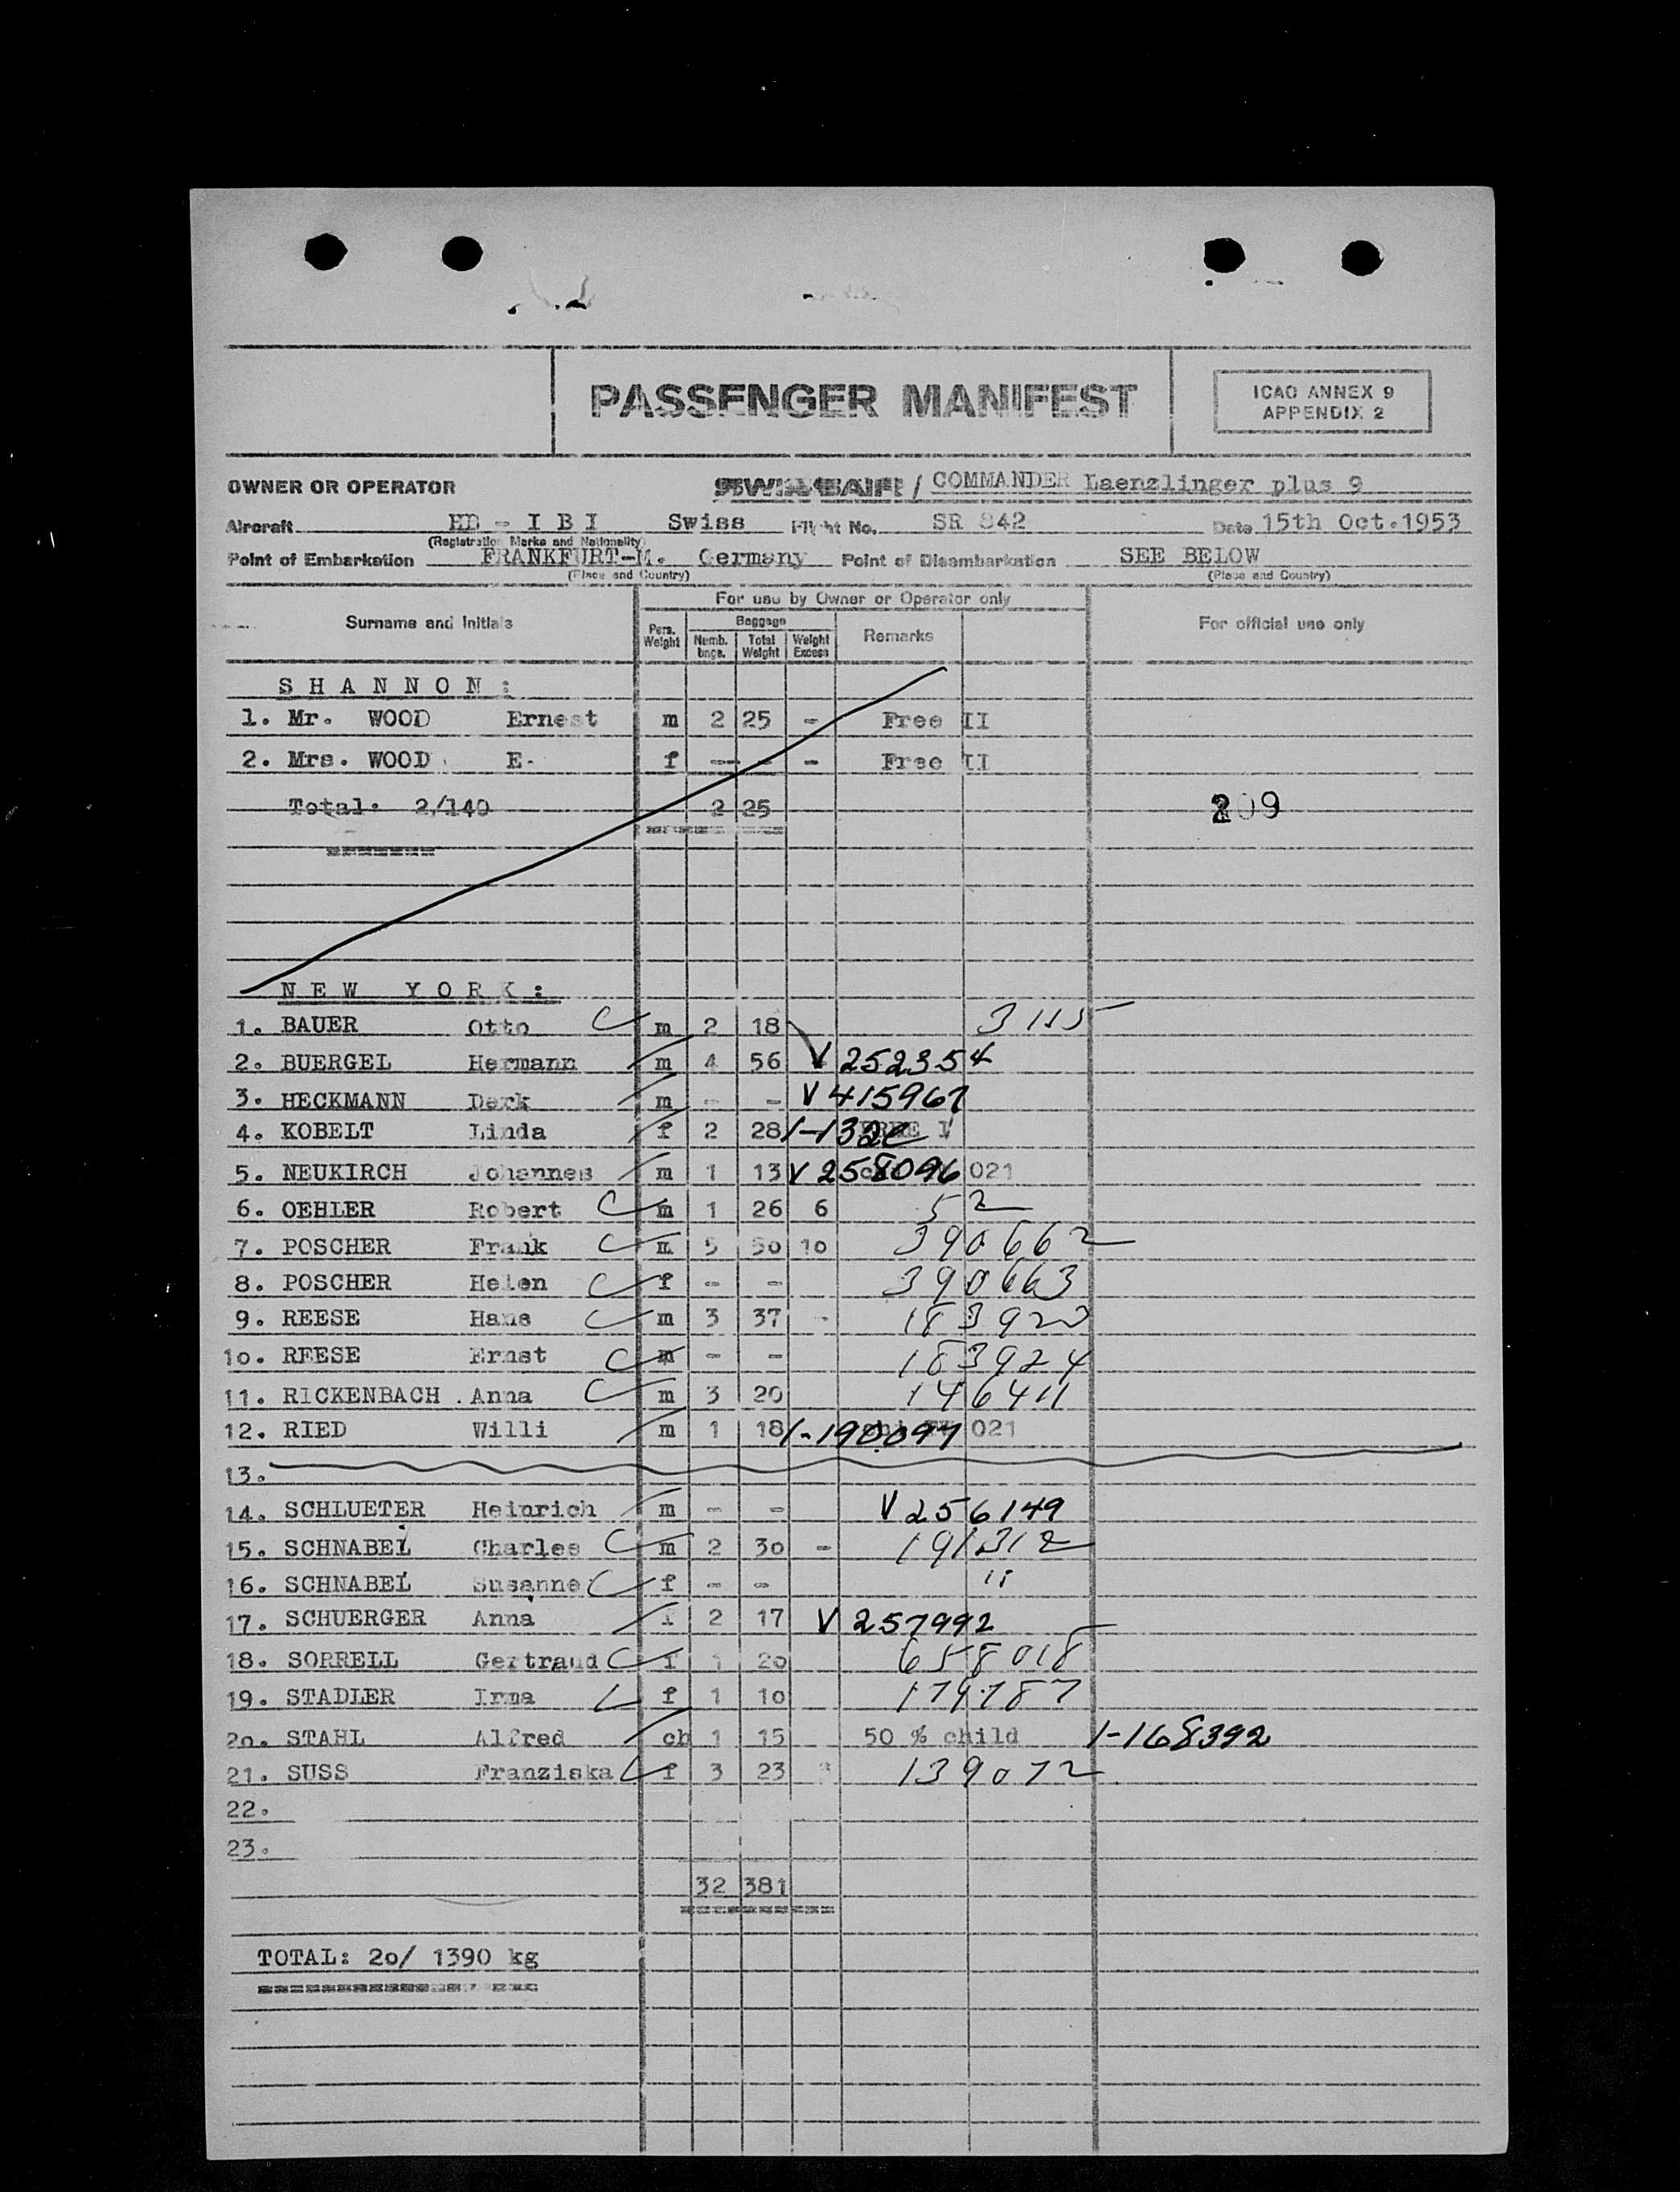 PASSENGER MANIFEST
ICAO ANNEX 9
APPENDIX 2
OWNER OR OPERATOR SWISSAIR / COMMANDER Laenzlinger plus 9
Aircraft HB - I B I Swiss Flight No. SR 842 Date 15th Oct.1953
(Registration Marks and Nationality)
Point of Embarkation FRANKFURT-M. Germany Point of Disembarkation SEE BELOW
(Place and Country) (Place and Country)
For use by Owner or Operator only
Surname and Initials Pers. Weight Baggage Numb. bags. Total Weight Weight Excess Remarks For official use only
S H A N N O N :
1. Mr. WOOD Ernest m 2 25 - Free II
2. Mrs. WOOD E. f - - - Free II
Total: 2/140 2 25 209
N E W Y O R K :
1. BAUER Otto C m 2 18 3115
2. BUERGEL Hermann m 4 56 V 252354
3. HECKMANN Derk m - - V 415967
4. KOBELT Linda f 2 28
5. NEUKIRCH Johannes m 1 13 V 258096 021
6. OEHLER Robert C m 1 26 6 52
7. POSCHER Frank C m 5 50 10 390662
8. POSCHER Helen C f - - 390663
9. REESE Hans C m 3 37 - 183923
10. REESE Ernst C m - - 183924
11. RICKENBACH . Anna C m 3 20 146411
12. RIED Willi m 1 18 1-190097 021
13.
14. SCHLUETER Heinrich m - - V 256149
15. SCHNABEL Charles C m 2 30 - 191312
16. SCHNABEL Susanne C f - - "
17. SCHUERGER Anna f 2 17 V 257992
18. SORRELL Gertraud C f 1 20 658018
19. STADLER Irma f 1 10 179787
20. STAHL Alfred ch 1 15 50 % child 1-168392
21. SUSS Franziska f 3 23 3 139072
22.
23.
32 381
TOTAL: 20/ 1390 kg